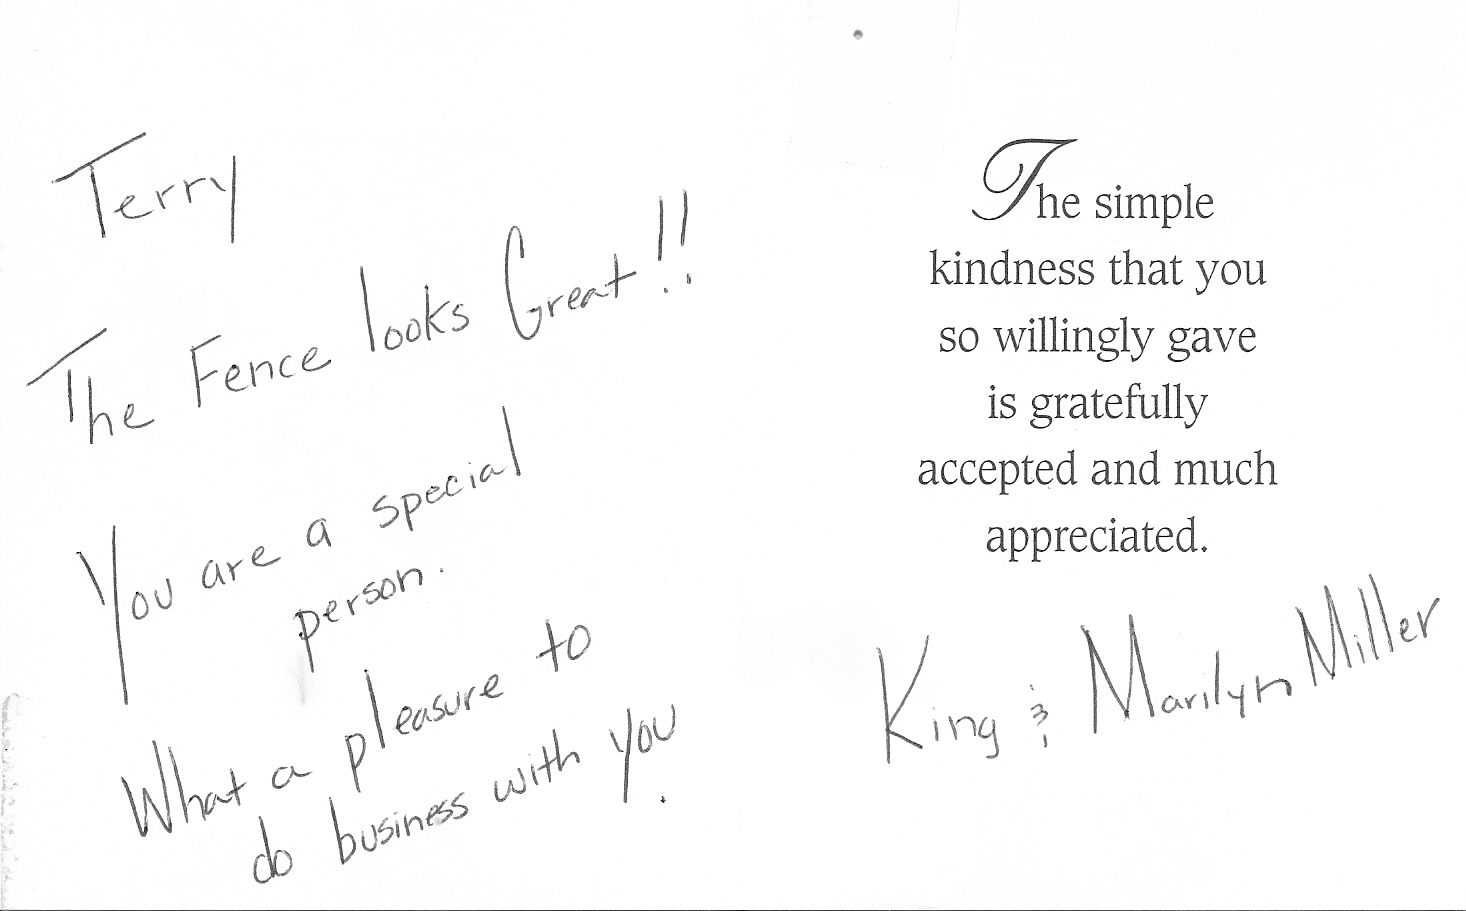 Terry
The Fence looks Great!!
You are a special
person.
What a pleasure to
do business with you.
The simple
kindness that you
so willingly gave
is gratefully
accepted and much
appreciated.
King & Marilyn Miller